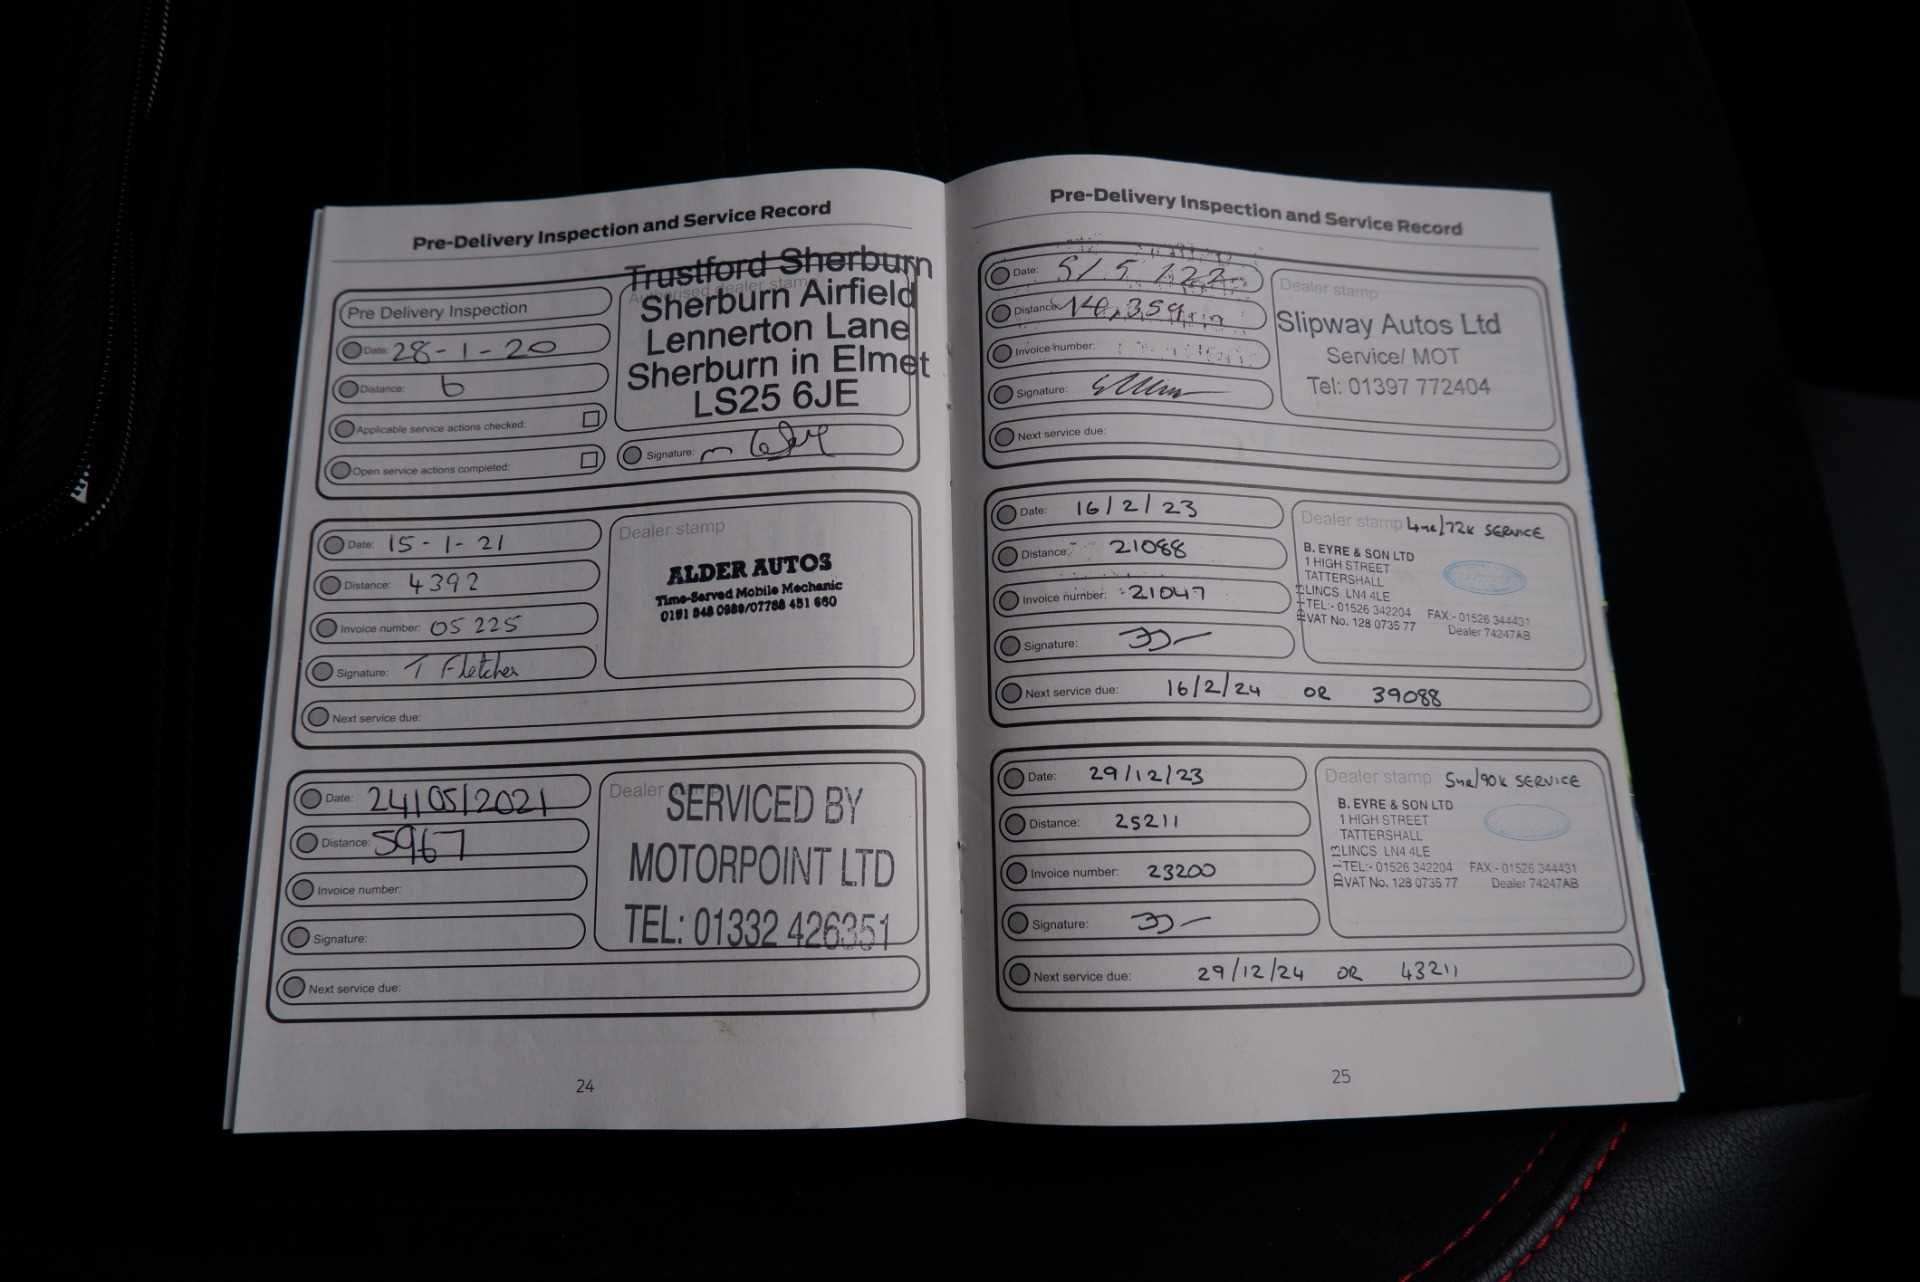 Pre-Delivery Inspection and Service Record
Pre Delivery Inspection
Date: 28-1-20
Distance: 6
Applicable service actions checked:
Open service actions completed:
Authorised dealer stamp
Trustford Sherburn
Sherburn Airfield
Lennerton Lane
Sherburn in Elmet
LS25 6JE
Signature:
Date: 15-1-21
Distance: 4392
Invoice number: 05225
Signature: T Fletcher
Next service due:
Dealer stamp
ALDER AUTOS
Time-Served Mobile Mechanic
0191 548 0989/07788 451 660
Date: 24/05/2021
Distance: 5967
Invoice number:
Signature:
Next service due:
Dealer stamp
SERVICED BY
MOTORPOINT LTD
TEL: 01332 426351
24
Pre-Delivery Inspection and Service Record
Date: 5/5/22
Distance: 14,359
Invoice number:
Signature:
Next service due:
Dealer stamp
Slipway Autos Ltd
Service/ MOT
Tel: 01397 772404
Date: 16/2/23
Distance: 21088
Invoice number: 21047
Signature:
Next service due: 16/2/24 OR 39088
Dealer stamp 4YR/72K SERVICE
B. EYRE & SON LTD
1 HIGH STREET
TATTERSHALL
LINCS LN4 4LE
TEL:- 01526 342204 FAX:- 01526 344431
VAT No. 128 0735 77 Dealer 74247AB
Date: 29/12/23
Distance: 25211
Invoice number: 23200
Signature:
Next service due: 29/12/24 OR 43211
Dealer stamp 5YR/90K SERVICE
B. EYRE & SON LTD
1 HIGH STREET
TATTERSHALL
LINCS LN4 4LE
TEL:- 01526 342204 FAX:- 01526 344431
VAT No. 128 0735 77 Dealer 74247AB
25